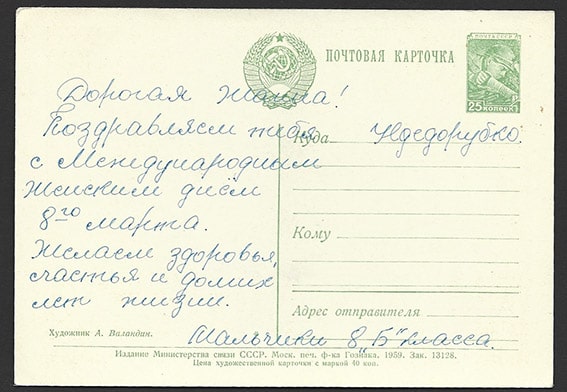 ПОЧТА СССР
25 КОПЕЕК
ПОЧТОВАЯ КАРТОЧКА
Дорогая Жанна!
Поздравляем тебя
с Международным
женским днём
8го марта.
Желаем здоровья,
счастья и долгих
лет жизни.
Мальчики 8 „Б" класса.
Куда
Кому
Адрес отправителя
Художник А. Валандин.
Издание Министерства связи СССР. Моск. печ. ф-ка Гознака. 1959. Зак. 13128.
Цена художественной карточки с маркой 40 коп.